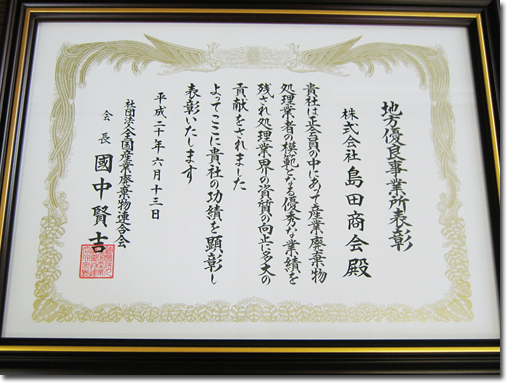 地方優良事業所表彰
株式会社 島田商会 殿
貴社は正会員の中にあって産業廃棄物
処理業者の模範となる優秀な業績を
残され処理業界の資質の向上に多大の
貢献をされました
よってここに貴社の功績を顕彰し
表彰いたします
平成二十年六月十三日
社団法人全国産業廃棄物連合会
会長 國中賢吉